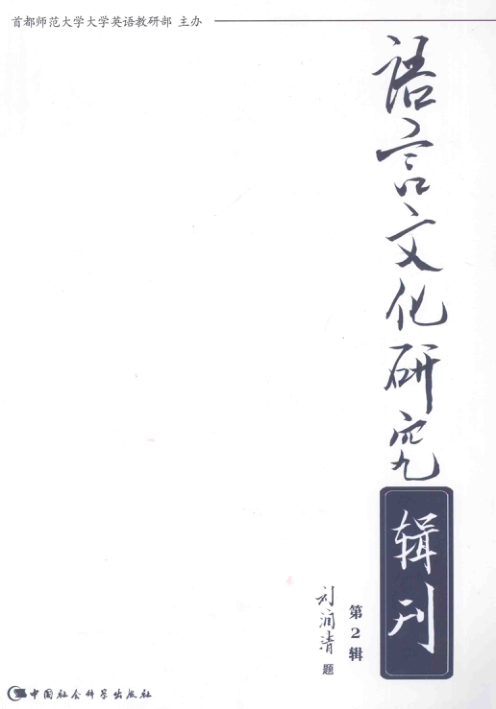 首都师范大学大学英语教研部 主办
語言文化研究
辑刊
第2辑
刘润清 题
中国社会科学出版社